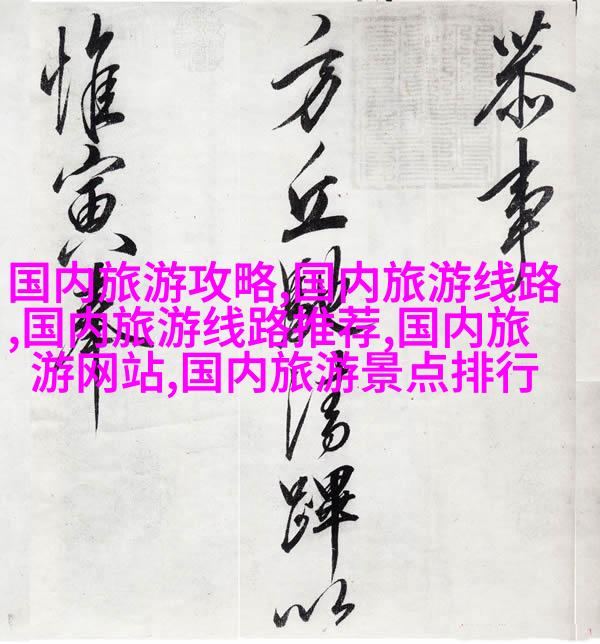 恭事
方丘清蹕以
惟寅奉
国内旅游攻略,国内旅游线路
,国内旅游线路推荐,国内旅
游网站,国内旅游景点排行